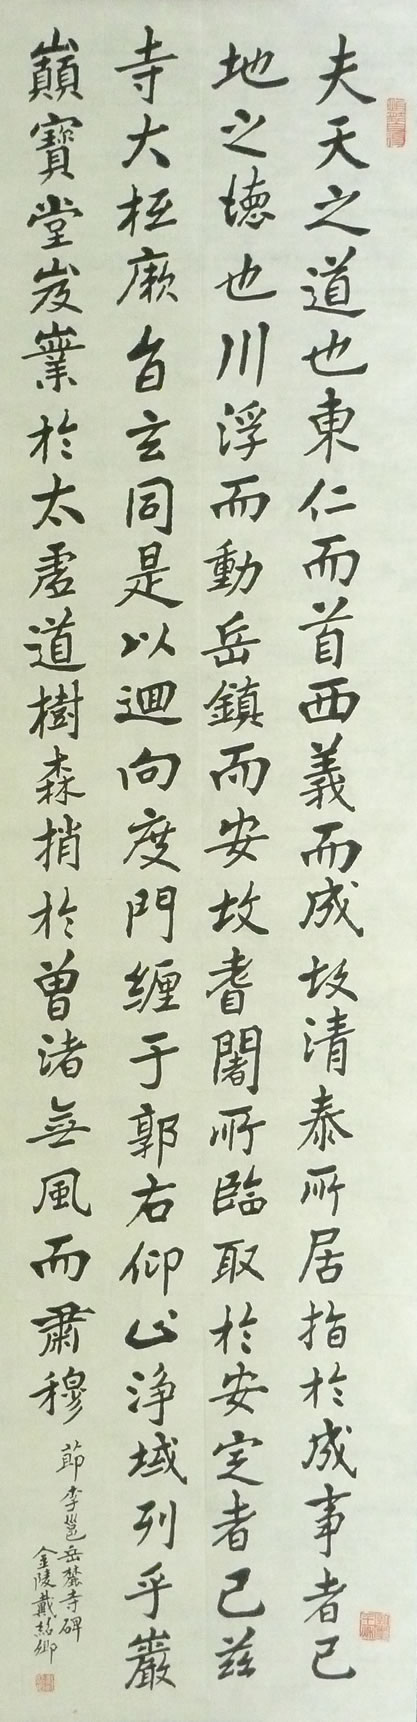 夫天之道也東仁而首西義而成故清泰所居指於成事者已
地之德也川浮而動岳鎮而安故耆闍所臨取於安定者已茲
寺大抵厥旨玄同是以迴向度門纏于郭右仰止淨域列乎巖
巔寶堂岌嶪於太虛道樹森梢於曾渚無風而肅穆
節李邕岳麓寺碑
金陵戴紹卿